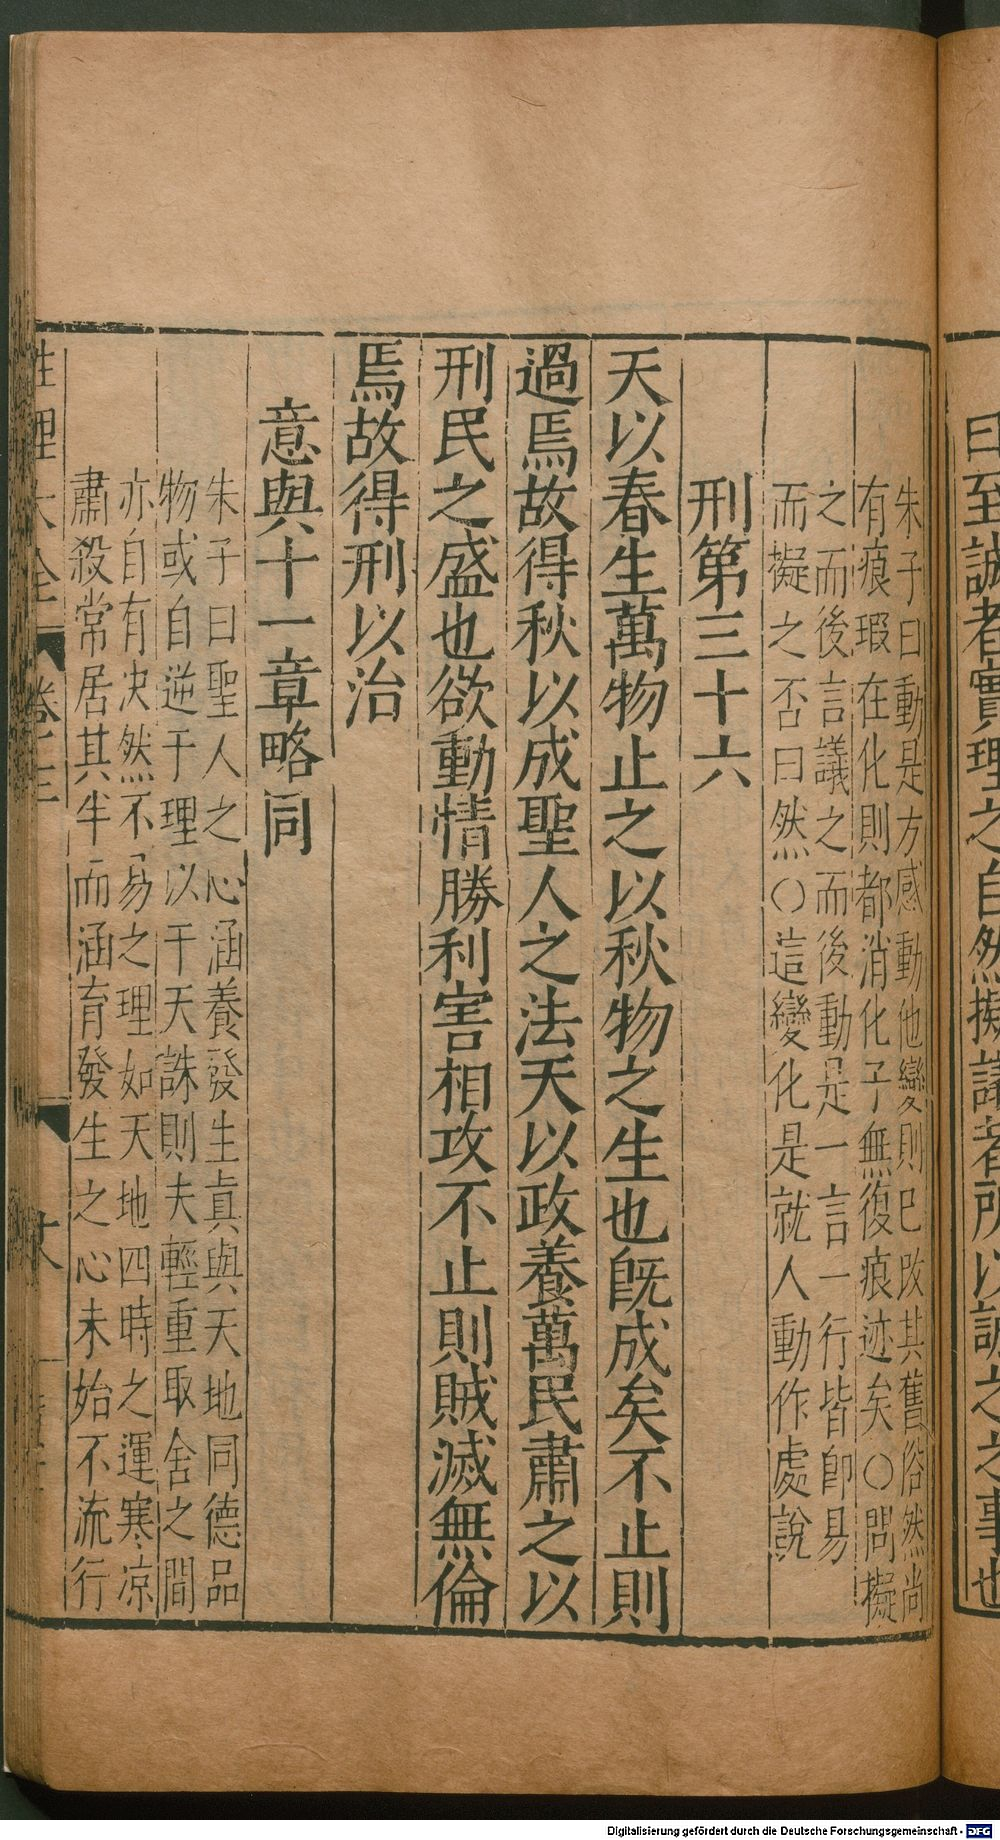 曰至誠者實理之自然擬議者所以誠之之事也
朱子曰動是方感動他變則已改其舊俗然尚
有痕瑕在化則都消化了無復痕迹矣○問擬
之而後言議之而後動是一言一行皆即易
而擬之否曰然○這變化是就人動作處說
刑第三十六
天以春生萬物止之以秋物之生也旣成矣不止則
過焉故得秋以成聖人之法天以政養萬民肅之以
刑民之盛也欲動情勝利害相攻不止則賊滅無倫
焉故得刑以治
意與十一章略同
朱子曰聖人之心涵養發生真與天地同德品
物或自逆于理以干天誅則夫輕重取舍之間
亦自有决然不易之理如天地四時之運寒凉
肅殺常居其半而涵育發生之心未始不流行
性理大全 卷之三
Digitalisierung gefördert durch die Deutsche Forschungsgemeinschaft - DFG